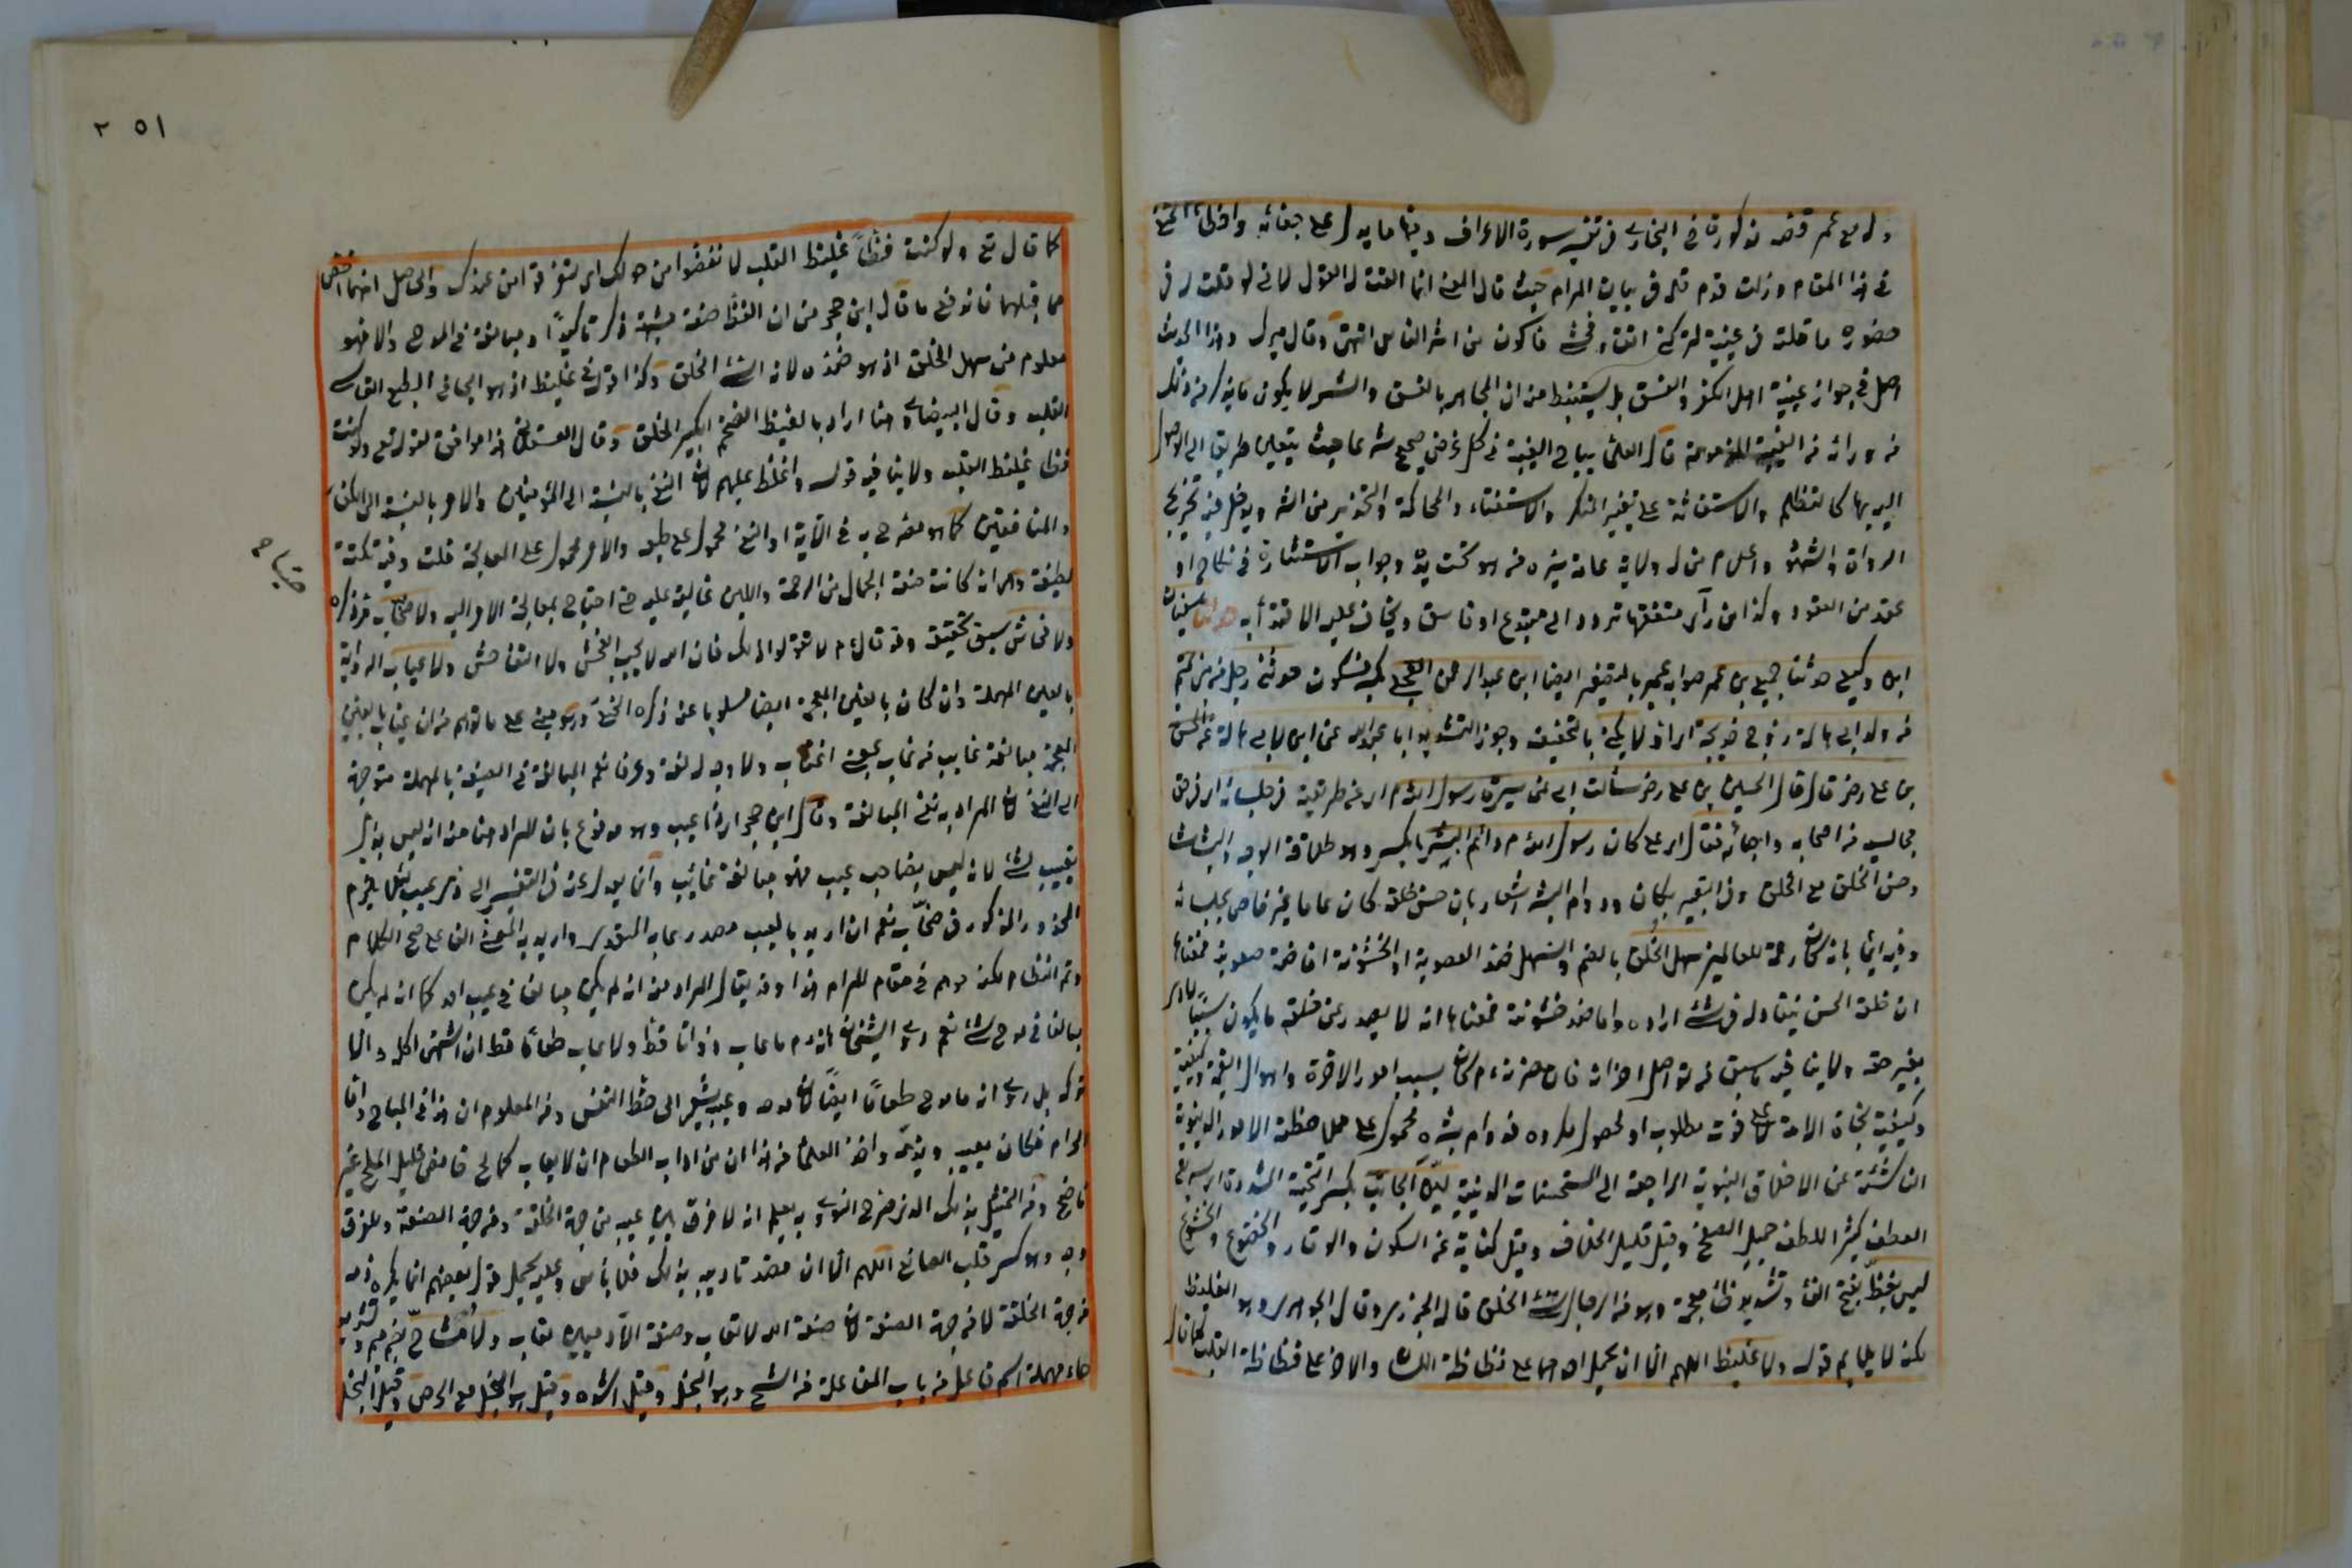 وله مع عمر قصة مذكورة في البخاري في تفسير سورة الاعراف وفيها ما يدل على جفائه
في هذا المقام وزلت قدم قلمه في بيان المرام حيث قال المعنى انما القت له القول لاني لو قلت له في
حضوره ما قلته في غيبته لتركني اتقاء فحشي فاكون من اشر الناس انتهى وقال ميرك وهذا الحديث
اصل في جواز غيبة اهل الكفر والفسق بل يستنبط منه ان المجاهر بالفسق والشر لا يكون ما يذكر فيه وذلك
من ورائه من الغيبة المذمومة قال العلماء يباح الغيبة في كل غرض صحيح شرعا حيث يتعين طريق الى الوصول
اليه بها كالتظلم والاستعانة على تغيير المنكر والاستفتاء والمحاكمة والتحذير من الشر ويدخل فيه تجريح
الرواة والشهود واعلام من له ولاية عامة بسيرة من هو تحت يده وجواب الاستشارة في نكاح او
عقد من العقود وكذا من رأى متفقها تردد الى مبتدع او فاسق ويخاف عليه الاقتداء به حدثنا سفيان
ابن وكيع حدثنا جميع بن عمر صوابه عمير بالتصغير ايضا ابن عبد الرحمن العجلي بكسر فسكون حدثني رجل من بني تميم
من ولد ابي هالة زوج خديجة اي اولا يكنى بالتخفيف وجوز التشديد ابا عبد الله عن ابن لابي هالة عن الحسن
بن علي رض قال قال الحسين بن علي رض سألت ابي عن سيرة رسول الله م اي عن طريقته في جلسائه اي في حق
مجالسيه من اصحابه واحبائه فقال اي علي كان رسول الله م دائم البشر بالكسر وهو طلاقة الوجه والبشاشة
وحسن الخلق مع الخلق وفي التعبير بكان ودوام البشر اشعار بان حسن خلقه كان عاما غير خاص بجلسائه
وفيه ايماء بانه كان رحمة للعالمين سهل الخلق بالضم والسهل ضد الصعوبة او الخشونة
ان خلقه الحسن ينقاد له في شيء اراده واما ضد خشونة فمعناه انه لا يصدر عن خلقه ما يكون سببا لاذى
بغير حقه ولا ينافيه ما سبق من تواصل احزانه فان حزنه م كان بسبب امور الاخرة واهوال القيمة
وكيفية نجاة الامة لا على فوت مطلوب او لحصول مكروه فدوام بشره محمول على ملاحظة الامور الدنيوية
الناشئة عن الاخلاق النبوية الراجعة الى المستحسنات الدينية لين الجانب بكسر التحتية المشددة اي سريع
العطف كثير اللطف جميل الصفح وقيل قليل الخلاف وقيل كناية عن السكون والوقار والخضوع والخشوع
ليس بفظ بفتح الفاء وتشديد ظاء معجمة وهو من الرجال سيئ الخلق قاله الجزري وقال الجوهري وهو الغليظ
لكن لا يلايم قوله ولا غليظ اللهم الا ان يحمل احدهما على فظاظة اللسان والاخر على فظاظة القلب كما قال
٢٥١
كما قال تع ولو كنت فظا غليظ القلب لانفضوا من حولك اي لتفرقوا من عندك والحاصل انهما اخص
مما قبلهما فاندفع ما قال ابن حجر من ان الفظ صفة مشبهة ذكر تاكيدا ومبالغة في المدح والا فهو
معلوم من سهل الخلق اذ هو ضده لانه السيئ الخلق وكذا قوله غليظ اذ هو الجافي الطبع القاسي
القلب وقال البيضاوي هنا اراد بالغليظ الضخم الكبير الخلق وقال العسقلاني هذا موافق لقوله تع ولو كنت
فظا غليظ القلب ولا ينافيه قوله واغلظ عليهم لان النفي بالنسبة الى المؤمنين والامر بالنسبة الى الكفار
والمنافقين كما هو مصرح به في الآية او النفي محمول على طبعه والامر محمول على المعالجة قلت وفيه نكتة
لطيفة وهي انه كانت صفة الجمال من الرحمة واللين غالبة عليه حتى احتاج بمعالجة الامر اليه ولا صخاب مر ذكره
صياح
ولا فحاش سبق تحقيقه وقد قال م لا تقولوا ذلك فان الله لا يحب الفحش ولا التفاحش ولا عياب الرواية
بالعين المهملة وان كان بالغين المعجمة ايضا مسلوبا عنه ذكره الحنفي وهو مبني على ما توهم من ان غياب بالغين
المعجمة مبالغة غايب من غاب بمعنى اغتاب ولا وجه له لغة وعرفا ثم المبالغة في الصيغة بالمهملة متوجهة
الى النفي لا المراد به نفي المبالغة وقال ابن حجر اي ذا عيب وهو مدفوع بان المراد هنا منه انه ليس بذي
بعيب لشيء لا انه ليس بصاحب عيب فهو مبالغة غائب وانما يعدل عنه في التفسير الى ذي عيب لئلا يلزم
المحذور المذكور في صخاب نعم ان اريد بالعيب مصدر عاب المتعدي واريد به المعنى الفاعلي صح الكلام
وتم النظام لكنه موهم في مقام المرام هذا وقد يقال المراد منه انه لم يكن مبالغا في عيب احد كما انه لم يكن
مبالغا في مدح شيء نعم روى الشيخان انه م ما عاب ذواقا قط ولا عاب طعاما قط ان اشتهى اكل والا
تركه بل روي انه ما مدح طعاما ايضا لان مدحه وعيبه يشير الى حظ النفس ومن المعلوم ان هذا في المباح واما
الحرام فكان يعيبه ويذمه واخذ العلماء من هذا ان من اداب الطعام ان لا يعاب كمالح حامض قليل الملح غير
ناضج ومن التمثيل بذلك الذي صرح النووي به يعلم انه لا فرق بين عيبه من جهة الخلقة ومن جهة الصنعة وللفرق
وجه وهو كسر قلب الصانع اللهم الا ان قصد تاديبه بذلك فلا بأس وعليه يحمل قول بعضهم انما يكره ذمه
من جهة الخلقة لا من جهة الصنعة لان صنعة الله لا تعاب وصنعة الآدميين تعاب ولا مشاح بضم ميم وتشديد
حاء مهملة اسم فاعل من باب المفاعلة من الشح وهو البخل وقيل اشده وقيل هو البخل مع الحرص وقيل البخل